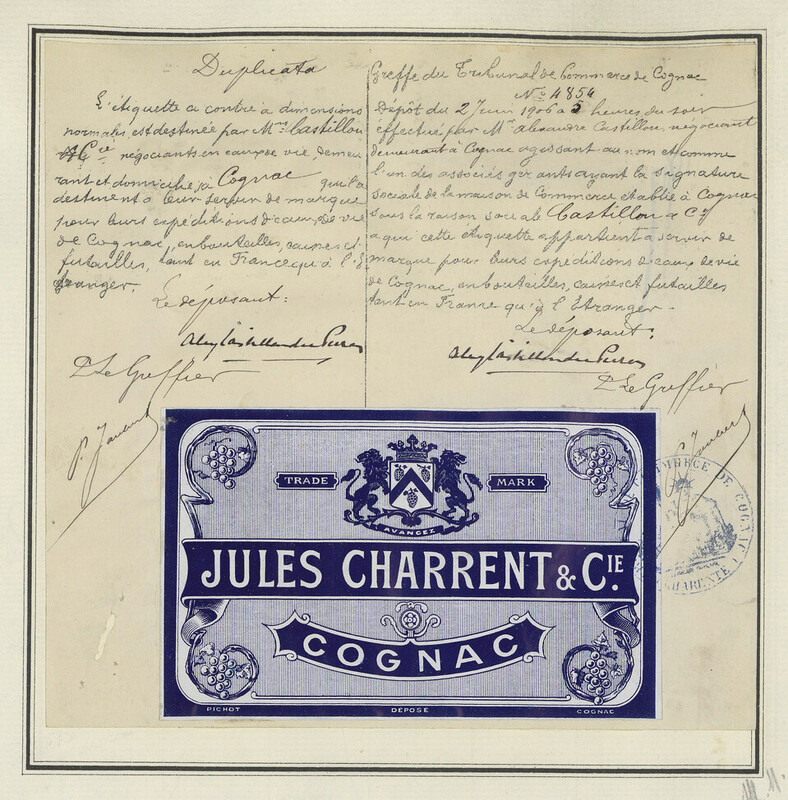 Duplicata
L'étiquette ci contre à dimensions
normales, est destinée par Mrs Castillon
& Cie négociants en eaux de vie, demeu
rant et domiciliés à Cognac qui la
destinent à leur servir de marque
pour leurs expéditions d'eaux de vie
de Cognac, en bouteilles, caisses et
futailles, tant en France qu'à l'é
tranger.
Le déposant:
P. Le Greffier
Greffe du Tribunal de Commerce de Cognac
No 4854
Dépôt du 2 Juin 1906 à 5 heures du soir
effectué par Mr Alexandre Castillon, négociant
demeurant à Cognac agissant au nom et comme
l'un des associés gérants ayant la signature
sociale de la maison de Commerce établie à Cognac
sous la raison sociale Castillon & Cie
à qui cette étiquette appartient à servir de
marque pour leurs expéditions d'eaux de vie
de Cognac, en bouteilles, caisses et futailles
tant en France qu'à l'Etranger.
Le déposant:
P. Le Greffier
TRADE MARK
AVANCEZ
JULES CHARRENT & CIE.
COGNAC
PICHOT DÉPOSÉ COGNAC
COMMERCE DE COGNAC
CHARENTE